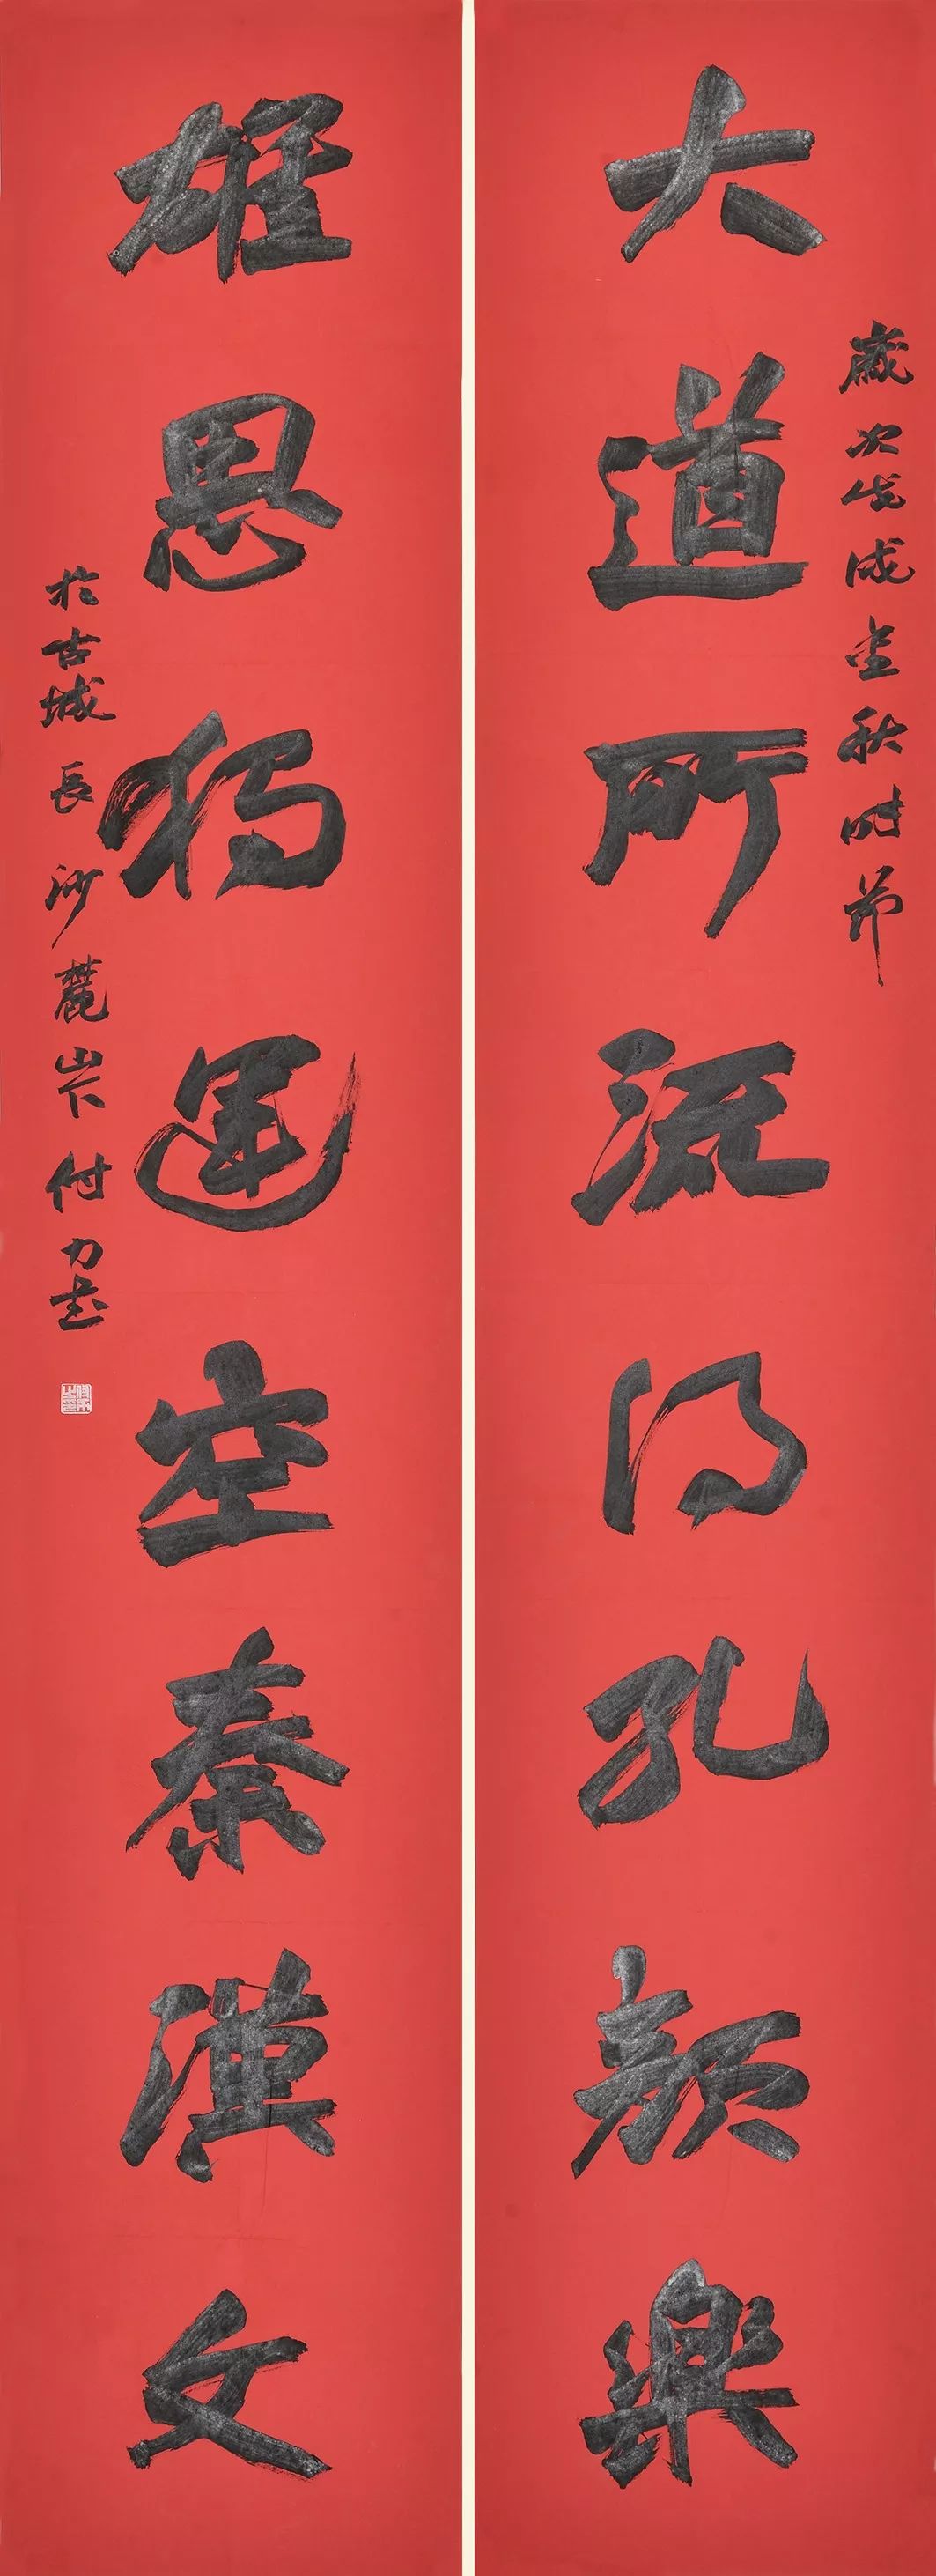 歲次戊戌金秋时節
大道所流得孔顏樂
雄思獨運空秦漢文
於古城長沙麓山下付力書